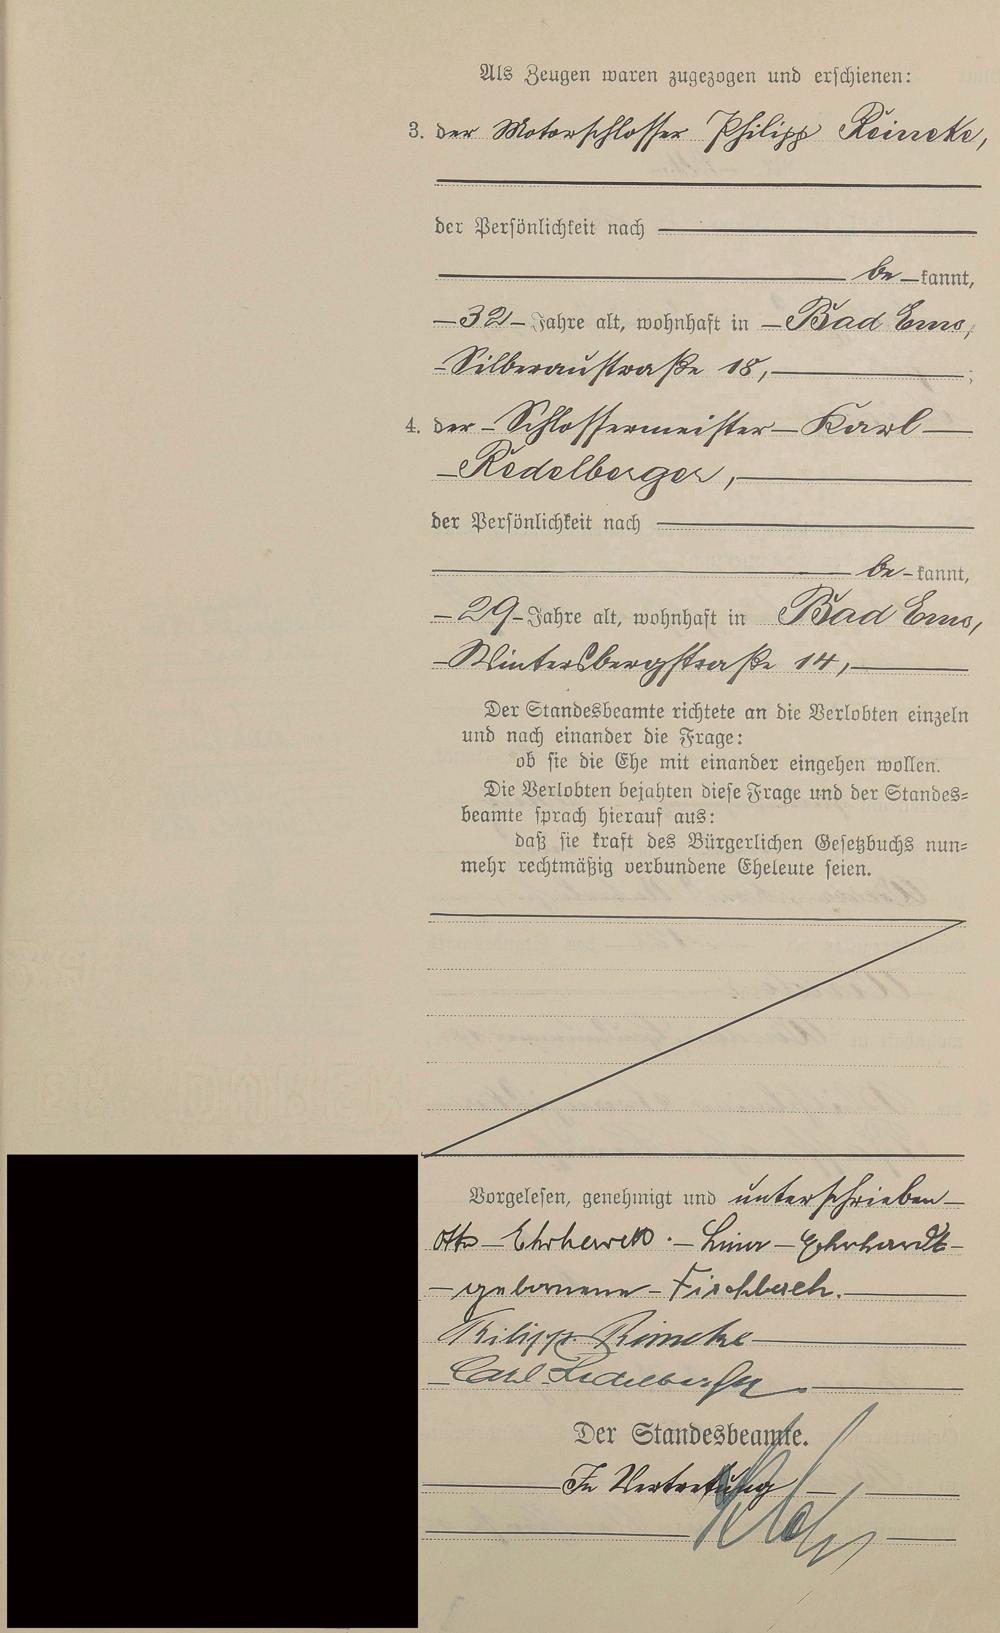 Als Zeugen waren zugezogen und erschienen:
3. der Motorschlosser Philipp Reineke,
der Persönlichkeit nach
be kannt,
32 Jahre alt, wohnhaft in Bad Ems,
Silberaustraße 18, ;
4. der Schlossermeister Karl
Redelberger,
der Persönlichkeit nach
be kannt,
29 Jahre alt, wohnhaft in Bad Ems,
Wintersbergstraße 14,
Der Standesbeamte richtete an die Verlobten einzeln
und nach einander die Frage:
ob sie die Ehe mit einander eingehen wollen.
Die Verlobten bejahten diese Frage und der Standes=
beamte sprach hierauf aus:
daß sie kraft des Bürgerlichen Gesetzbuchs nun=
mehr rechtmäßig verbundene Eheleute seien.
Vorgelesen, genehmigt und unterschrieben
Otto Ehrhardt. Lina Ehrhardt
gebornene Fischbach.
Philipp Reineke
Carl Redelberger
Der Standesbeamte.
In Vertretung